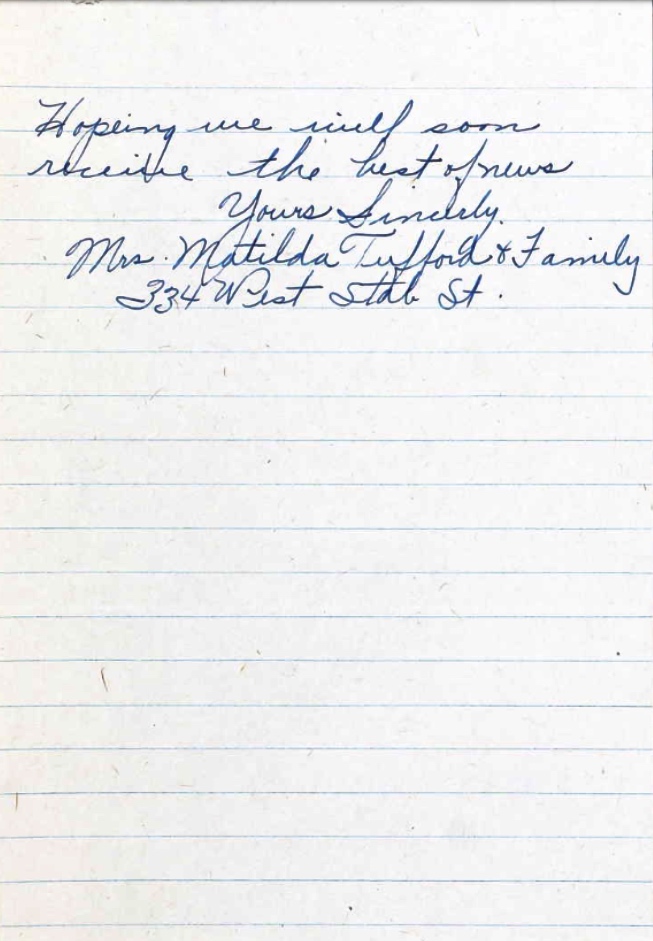 Hopeing we will soon
receive the best of news
Yours Sincerly.
Mrs. Matilda Tufford & Family
334 West St.